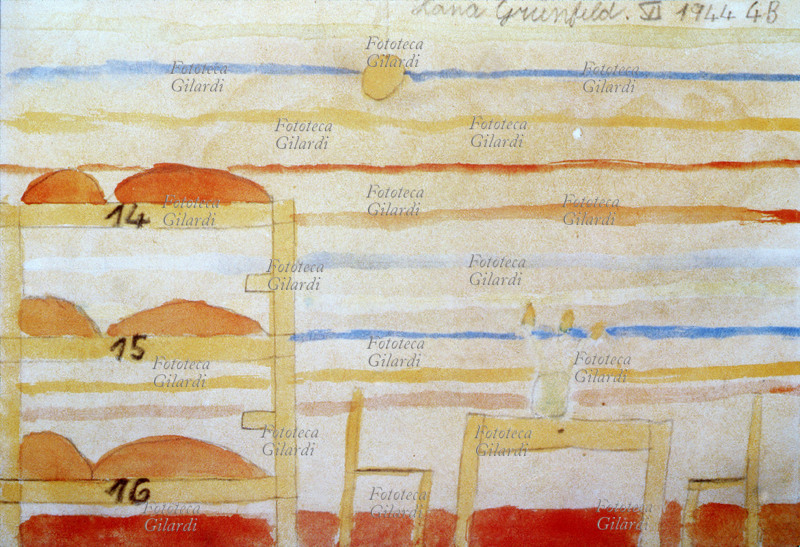 Hana Grünfeld. VI 1944 4B
Fototeca
Gilardi
Fototeca
Gilardi
Fototeca
Gilardi
Fototeca
Gilardi
Fototeca
Gilardi
Fototeca
Gilardi
14
Fototeca
Gilardi
Fototeca
Gilardi
Fototeca
Gilardi
Fototeca
Gilardi
15
Fototeca
Gilardi
Fototeca
Gilardi
Fototeca
Gilardi
Fototeca
Gilardi
Fototeca
Gilardi
16
Fototeca
Gilardi
Fototeca
Gilardi
Fototeca
Gilardi